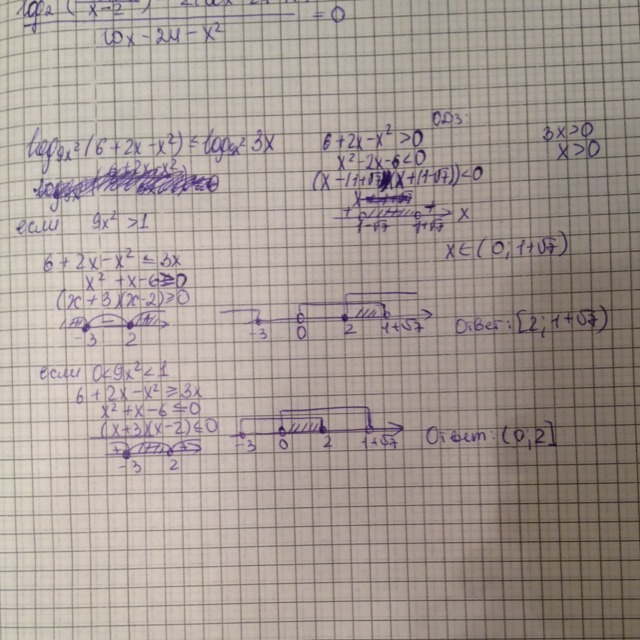 = 0
10x - 24 - x²
ОДЗ:
log₉ₓ²(6+2x-x²) ≤ log₉ₓ² 3x
6+2x-x²>0
x²-2x-6<0
3x>0
x>0
x
1-√7 1+√7
x∈(0; 1+√7)
если 9x²>1
6+2x-x² ≤ 3x
x²+x-6≥0
(x+3)(x-2)≥0
-3 2
-3 0 2 1+√7
Ответ: [2; 1+√7)
если 0<9x²<1
6+2x-x² ≥ 3x
x²+x-6≤0
(x+3)(x-2)≤0
-3 2
-3 0 2 1+√7
Ответ: (0; 2]